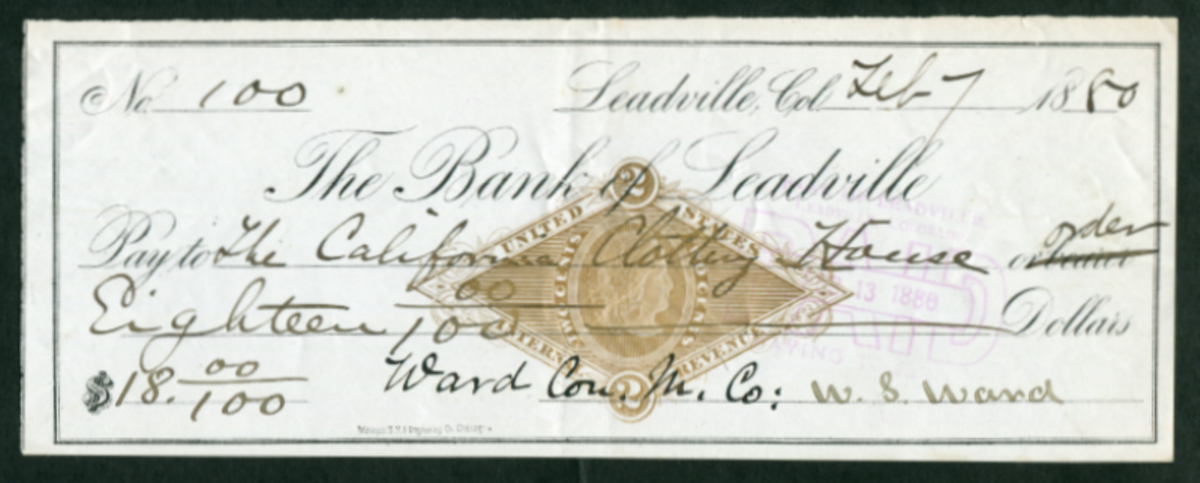 No 100 Leadville, Col. Feb 7 1880
The Bank of Leadville
UNITED STATES
Pay to The California Clothing House or bearer order
13 1880
Eighteen 00/100 Dollars
INTERNAL REVENUE
TWO CENTS
2
2
PAID
PAYING
$18. 00/100 Ward Con. M. Co: W. S. Ward